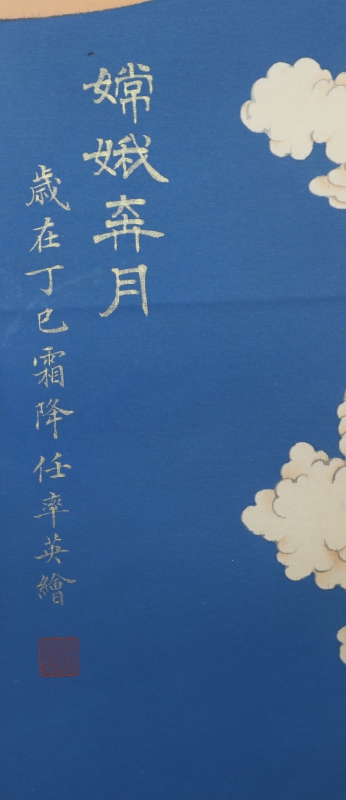 嫦娥奔月
歲在丁巳霜降任率英繪